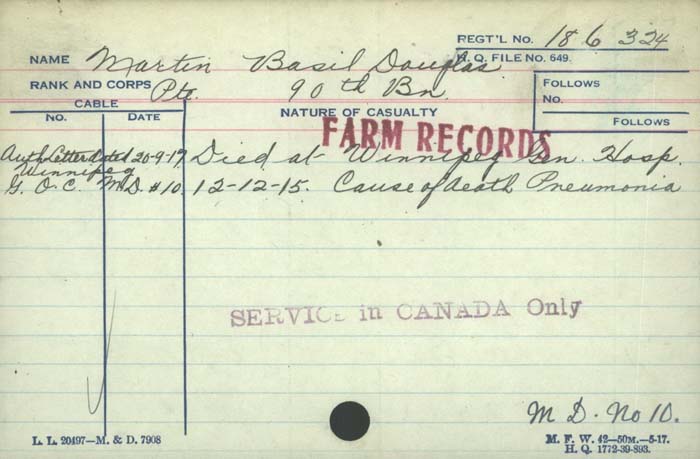 REGT'L No. 186324
NAME Martin Basil Douglas H. Q. FILE NO. 649.
RANK AND CORPS Pte. 90th Bn. FOLLOWS
No.
CABLE NATURE OF CASUALTY
No. DATE FOLLOWS
FARM RECORDS
Auth Letter dated 20-9-17 Died at Winnipeg Gen. Hosp.
Winnipeg
G. O. C. M.D. #10. 12-12-15. Cause of death Pneumonia
SERVICE in CANADA Only
M. D. No 10.
L. L. 20497—M. & D. 7908
M. F. W. 42—50M.—5-17.
H. Q. 1772-39-893.